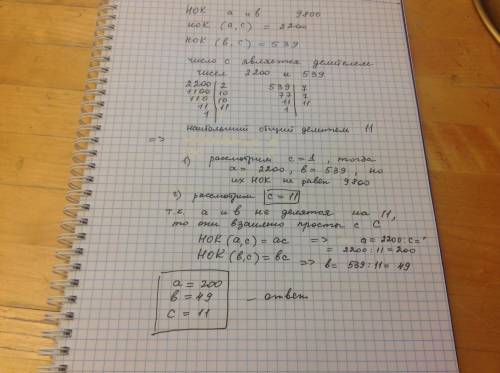 НОК а и в 9800
НОК (а, с) = 2200
НОК (в, с) = 539
число с является делителем
чисел 2200 и 539
2200 | 2 539 | 7
1100 | 10 77 | 7
110 | 10 11 | 11
11 | 11 1
1
наибольший общий делитель 11
=>
1) рассмотрим с = 1, тогда
а = 2200, в = 539, но
их НОК не равен 9800
2) рассмотрим с = 11
т.к. а и в не делятся на 11,
то они взаимно просты с с
НОК (а, с) = ас => а = 2200 : с =
= 2200 : 11 = 200
НОК (в, с) = вс => в = 539 : 11 = 49
а = 200
в = 49
с = 11
– ответ